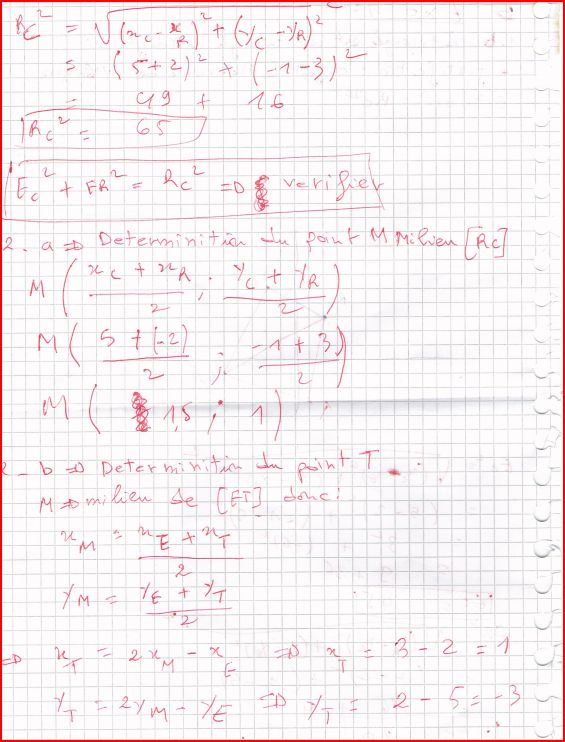 Rc² = √(xc - xR)² + (yc - yR)²
= (5+2)² + (-1-3)²
= 49 + 16
Rc² = 65
Ec² + ER² = Rc² => verifier
2. a => Determinition du point M Milien [Rc]
M ( xc + xR / 2 ; yc + yR / 2 )
M ( 5 + (-2) / 2 ; -1 + 3 / 2 )
M ( 1,5 ; 1 )
2 - b => Determinition du point T
M => milieu de [ET] donc:
xM = xE + xT / 2
yM = yE + yT / 2
=> xT = 2xM - xE => xT = 3 - 2 = 1
yT = 2yM - yE => yT = 2 - 5 = -3